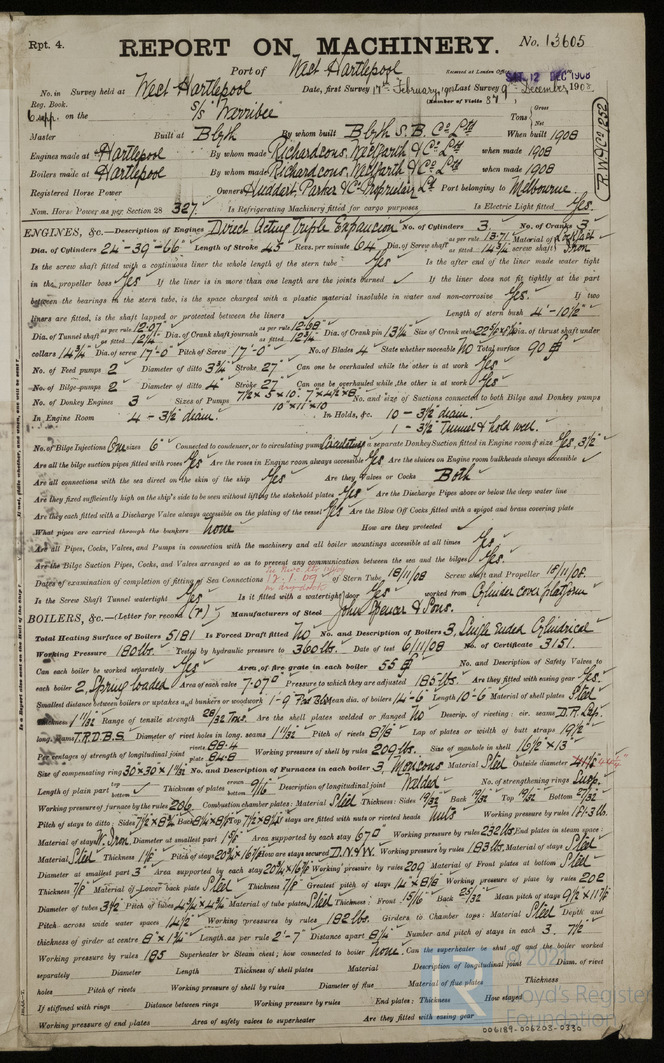 Rpt. 4.
REPORT ON MACHINERY.
No. 13605
Port of West Hartlepool
Received at London Office SAT. 12 DEC 1908
No. in Survey held at West Hartlepool Date, first Survey 17th February, 190 Last Survey 9th December 1908
Reg. Book. (Number of Visits 87)
6 supp. on the S/S "Werribee" Tons Gross Net
Master Built at Blyth By whom built Blyth S. B. Co Ltd When built 1908
Engines made at Hartlepool By whom made Richardsons, Westgarth & Co Ltd when made 1908
Boilers made at Hartlepool By whom made Richardsons, Westgarth & Co Ltd when made 1908
Registered Horse Power Owners Huddart Parker & Co Proprietary Ld Port belonging to Melbourne
Nom. Horse Power as per Section 28 327. Is Refrigerating Machinery fitted for cargo purposes Is Electric Light fitted Yes.
R.W.& Co. 252
ENGINES, &c.—Description of Engines Direct Acting Triple Expansion No. of Cylinders 3 No. of Cranks 3
Dia. of Cylinders 24"-39"-66" Length of Stroke 45" Revs. per minute 64 Dia. of Screw shaft as per rule 13.71 as fitted 14 3/4 Material of screw shaft Iron
Is the screw shaft fitted with a continuous liner the whole length of the stern tube Yes Is the after end of the liner made water tight
in the propeller boss Yes If the liner is in more than one length are the joints burned If the liner does not fit tightly at the part
between the bearings in the stern tube, is the space charged with a plastic material insoluble in water and non-corrosive Yes. If two
liners are fitted, is the shaft lapped or protected between the liners Length of stern bush 4'-10 1/2"
Dia. of Tunnel shaft as per rule 12.07" as fitted 12 1/4" Dia. of Crank shaft journals as per rule 12.68" as fitted 12 3/4" Dia. of Crank pin 13 1/4" Size of Crank webs Dia. of thrust shaft under
collars 14 3/4" Dia. of screw 17'-0" Pitch of Screw 17'-0" No. of Blades 4 State whether moveable No Total surface 90
No. of Feed pumps 2 Diameter of ditto 3 3/4" Stroke 27" Can one be overhauled while the other is at work Yes
No. of Bilge pumps 2 Diameter of ditto 4" Stroke 27" Can one be overhauled while the other is at work Yes
No. of Donkey Engines 3 Sizes of Pumps 7 1/2 x 5 x 10: 7 x 4 1/2 x 8: 10" x 11" x 10" No. and size of Suctions connected to both Bilge and Donkey pumps
In Engine Room 4 - 3 1/2" diam. In Holds, &c. 10 - 3 1/2" diam.
1 - 3 1/2" Tunnel & hold well.
No. of Bilge Injections One sizes 6" Connected to condenser, or to circulating pump Circulating Is a separate Donkey Suction fitted in Engine room & size Yes, 3 1/2"
Are all the bilge suction pipes fitted with roses Yes Are the roses in Engine room always accessible Yes Are the sluices on Engine room bulkheads always accessible
Are all connections with the sea direct on the skin of the ship Yes Are they Valves or Cocks Both
Are they fixed sufficiently high on the ship's side to be seen without lifting the stokehold plates Yes Are the Discharge Pipes above or below the deep water line
Are they each fitted with a Discharge Valve always accessible on the plating of the vessel Yes Are the Blow Off Cocks fitted with a spigot and brass covering plate
What pipes are carried through the bunkers None How are they protected
Are all Pipes, Cocks, Valves, and Pumps in connection with the machinery and all boiler mountings accessible at all times Yes
Are the Bilge Suction Pipes, Cocks, and Valves arranged so as to prevent any communication between the sea and the bilges Yes.
Dates of examination of completion of fitting of Sea Connections 12.1.09 of Stern Tube 18/11/08 Screw shaft and Propeller 18/11/08.
Is the Screw Shaft Tunnel watertight Yes Is it fitted with a watertight door Yes worked from Cylinder cover platform
BOILERS, &c.—(Letter for record (r)) Manufacturers of Steel John Spencer & Sons.
Total Heating Surface of Boilers 5181 Is Forced Draft fitted No No. and Description of Boilers 3, Single Ended Cylindrical
Working Pressure 180 lbs. Tested by hydraulic pressure to 360 lbs. Date of test 6/11/08 No. of Certificate 3151.
Can each boiler be worked separately Yes Area of fire grate in each boiler 55 No. and Description of Safety Valves to
each boiler 2, Spring loaded Area of each valve 7.07 Pressure to which they are adjusted 185 lbs. Are they fitted with easing gear Yes.
Smallest distance between boilers or uptakes and bunkers or woodwork 1-9 Mean dia. of boilers 14-6" Length 10-6" Material of shell plates Steel
Thickness 1 1/32 Range of tensile strength 28/32 Tons. Are the shell plates welded or flanged No Descrip. of riveting: cir. seams D.R. Lap.
long. seams T.R.D.B.S. Diameter of rivet holes in long. seams 1 1/32 Pitch of rivets 8 1/8 Lap of plates or width of butt straps 19 1/2
Per centages of strength of longitudinal joint rivets 88.4 plate 84.8 Working pressure of shell by rules 209 lbs. Size of manhole in shell 16 1/2 x 13"
Size of compensating ring 30 x 30 x 1 1/32 No. and Description of Furnaces in each boiler 3, Morisons Material Steel Outside diameter
Length of plain part top bottom Thickness of plates crown bottom 9/16 Description of longitudinal joint Welded No. of strengthening rings Susp.
Working pressure of furnace by the rules 206 Combustion chamber plates: Material Steel Thickness: Sides 19/32 Back 19/32 Top 19/32 Bottom 27/32
Pitch of stays to ditto: Sides Back Top If stays are fitted with nuts or riveted heads Nuts Working pressure by rules
Material of stays W. Iron Diameter at smallest part Area supported by each stay 67 Working pressure by rules 232 lbs End plates in steam space:
Material Steel Thickness 1 1/8 Pitch of stays How are stays secured D.N.&W. Working pressure by rules 183 lbs. Material of stays Steel
Diameter at smallest part 3" Area supported by each stay Working pressure by rules 209 Material of Front plates at bottom Steel
Thickness 7/8 Material of Lower back plate Steel Thickness 7/8 Greatest pitch of stays 14" x 8 1/8 Working pressure of plate by rules 202
Diameter of tubes 3 1/2 Pitch of tubes Material of tube plates Steel Thickness: Front 15/16 Back 25/32 Mean pitch of stays
Pitch across wide water spaces 14 1/2" Working pressures by rules 182 lbs. Girders to Chamber tops: Material Steel Depth and
thickness of girder at centre 8" x 1 3/4" Length as per rule 2'-7" Distance apart 8 1/4" Number and pitch of stays in each 3. 7 1/2"
Working pressure by rules 185 Superheater or Steam chest; how connected to boiler None. Can the superheater be shut off and the boiler worked
separately Diameter Length Thickness of shell plates Material Description of longitudinal joint Diam. of rivet
holes Pitch of rivets Working pressure of shell by rules Diameter of flue Material of flue plates Thickness
If stiffened with rings Distance between rings Working pressure by rules End plates: Thickness How stayed
Working pressure of end plates Area of safety valves to superheater Are they fitted with easing gear
Lloyd's Register
Foundation
006189-006203-0330